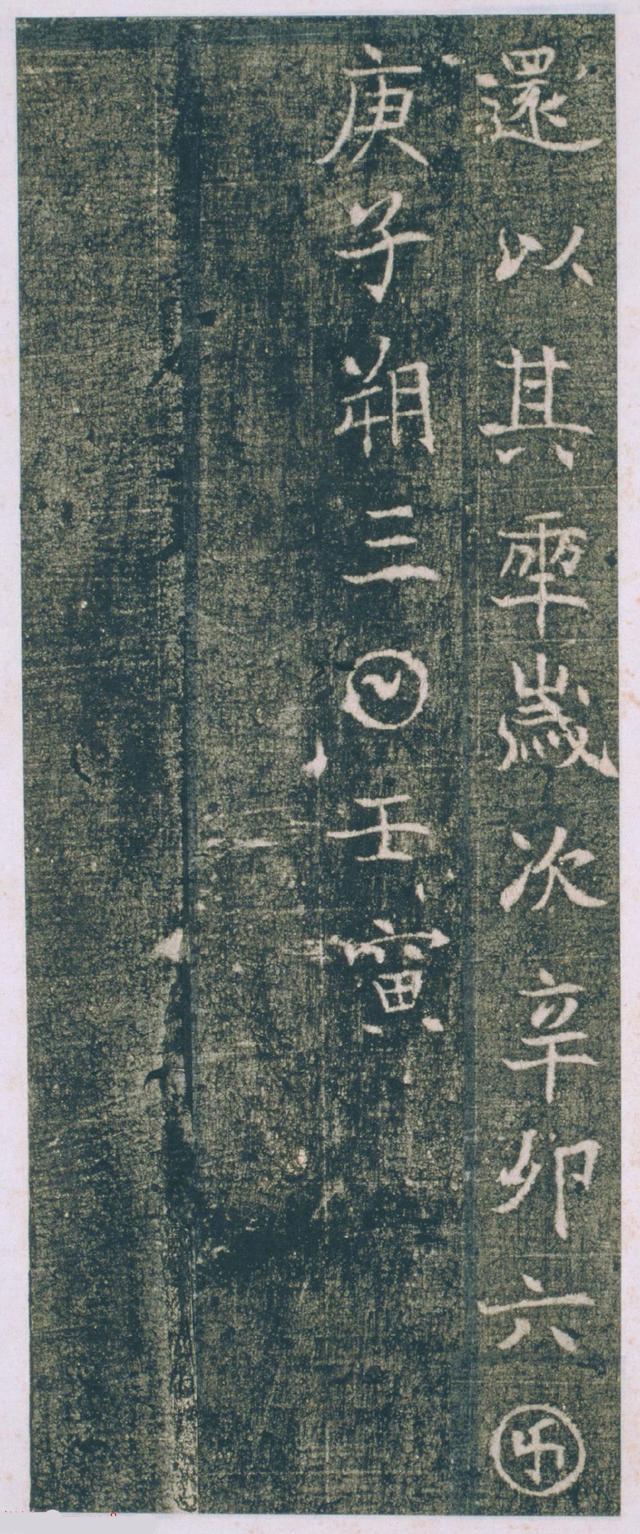 還以其𠡦歲次辛卯六囝
庚子朔三𡆠壬寅